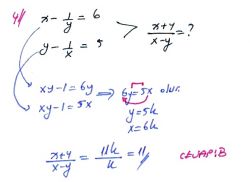 4/
x - 1/y = 6
y - 1/x = 5
> x+y/x-y = ?
xy-1 = 6y ⇒ 6y = 5x olur.
xy-1 = 5x
y = 5k
x = 6k
x+y/x-y = 11k/k = 11 //
CEVAP B